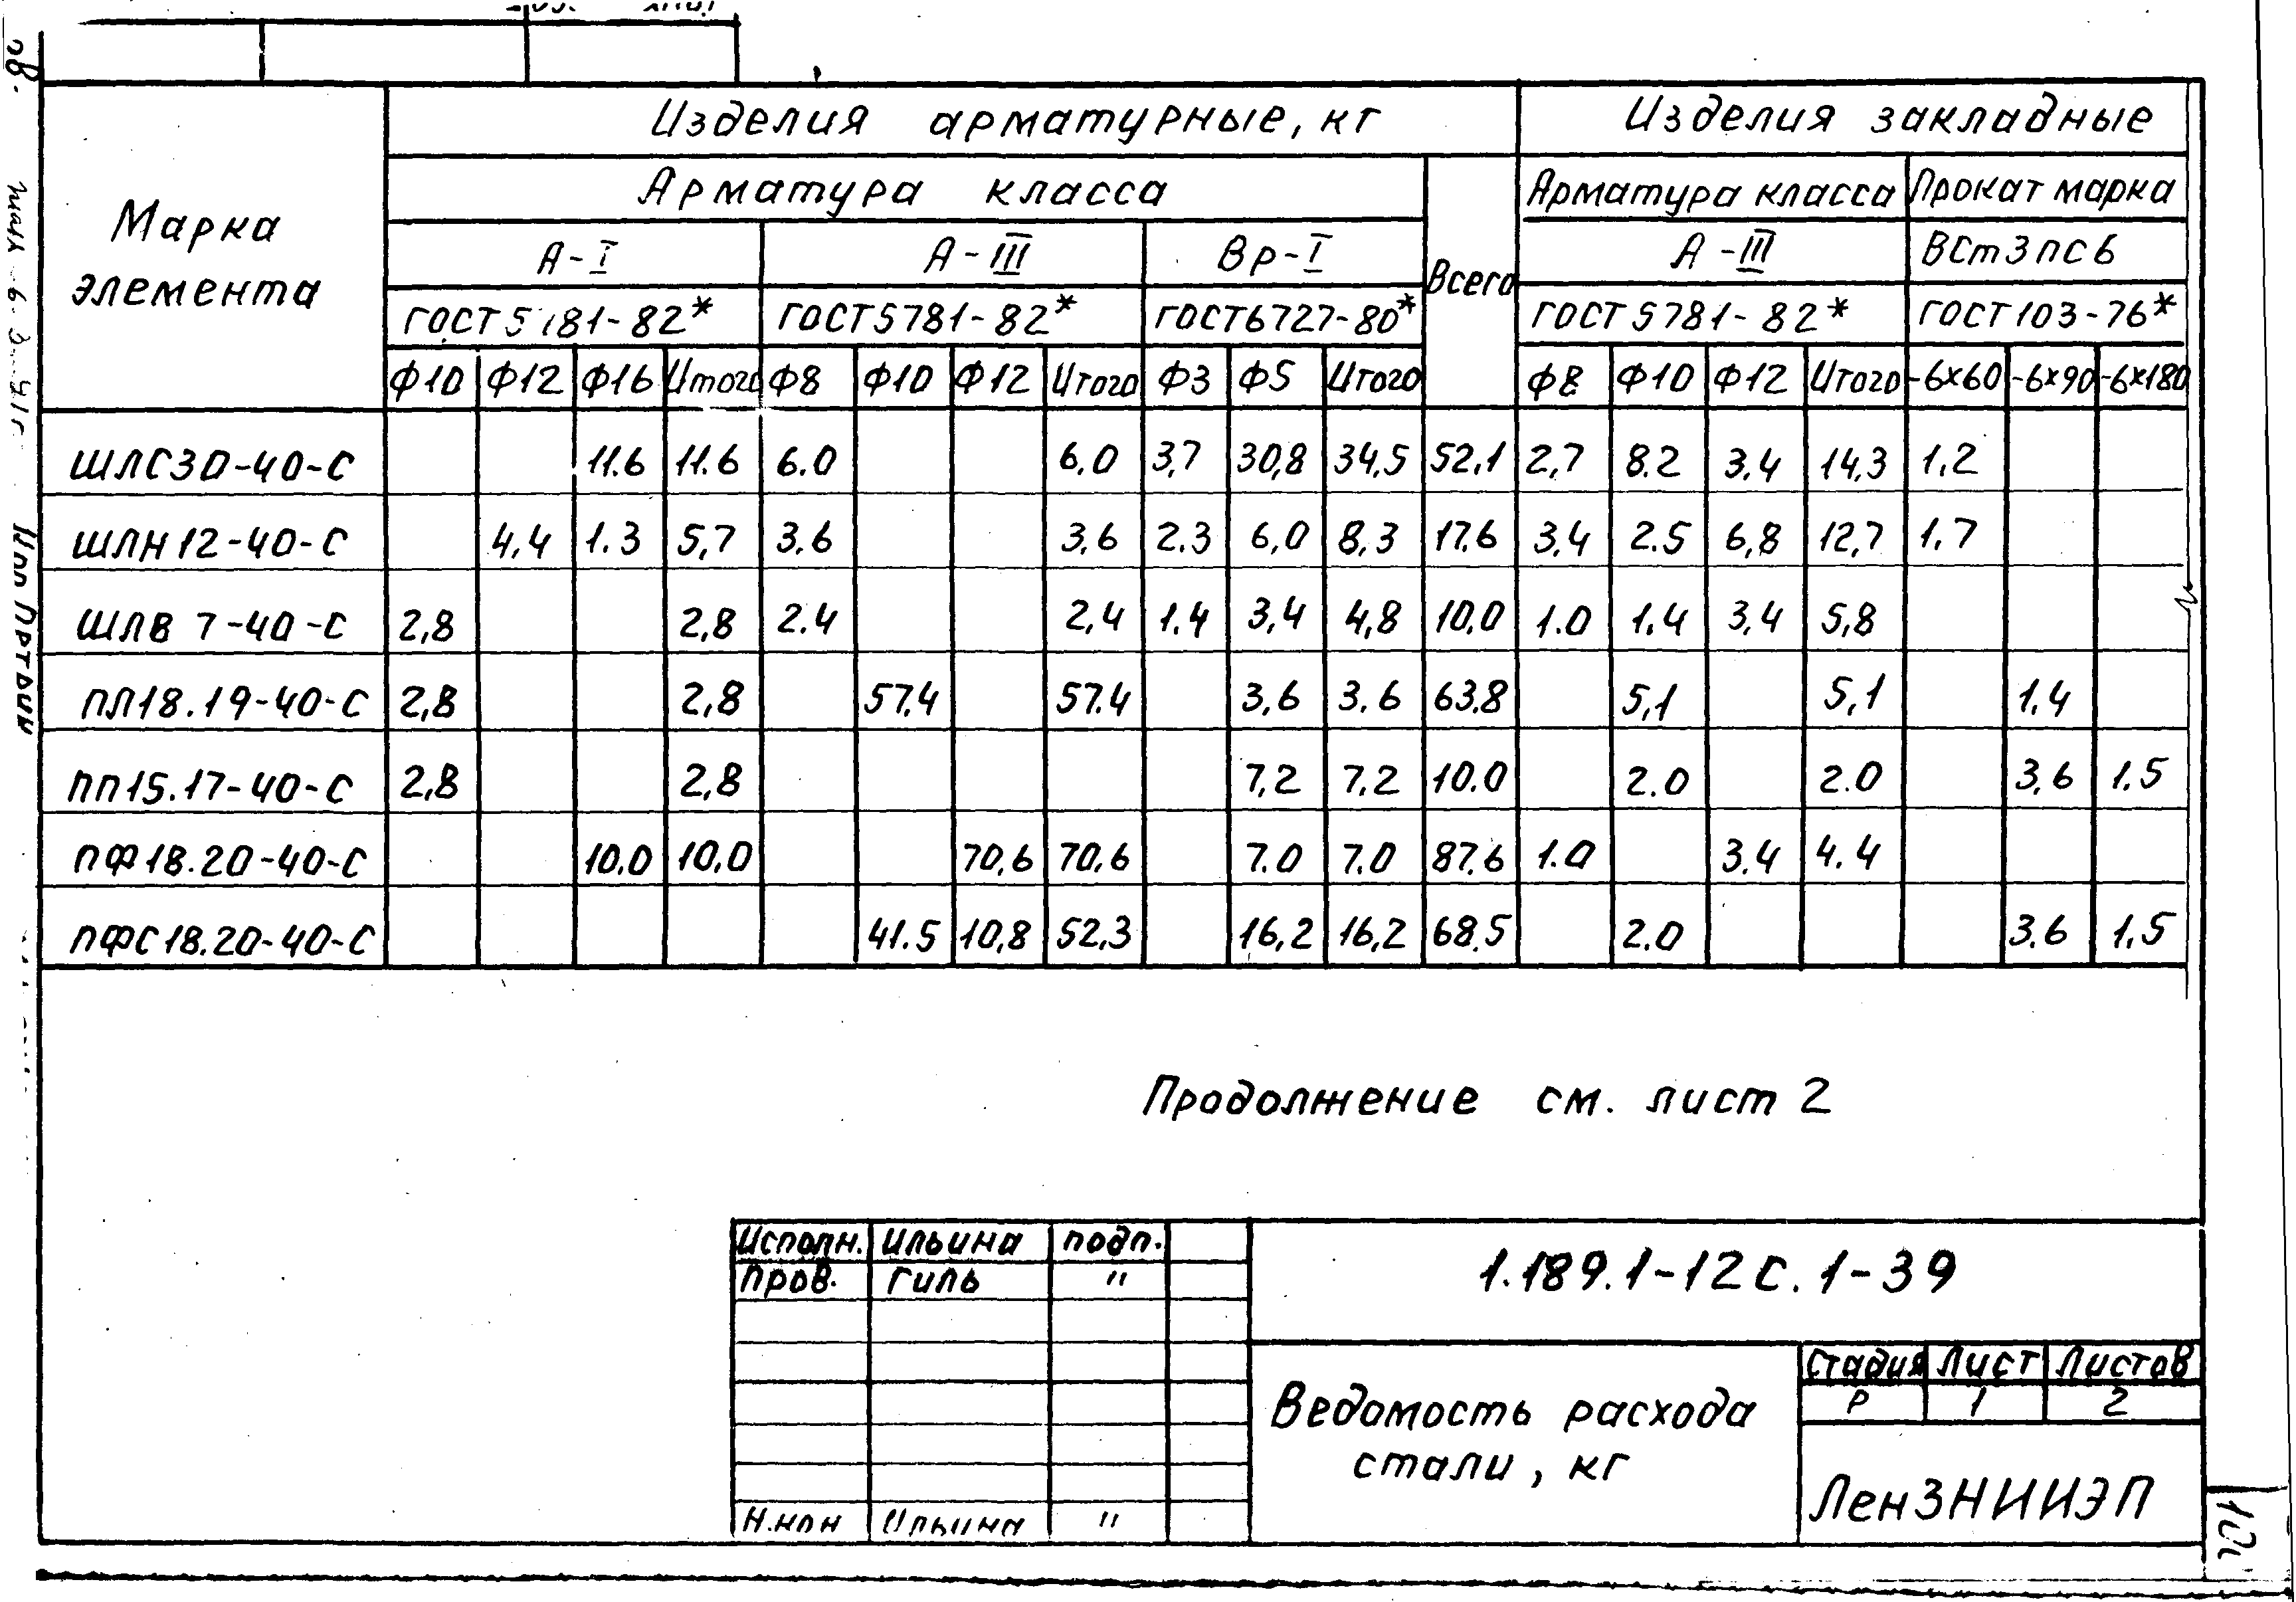 Изделия арматурные, кг Изделия закладные
Марка элемента
Арматура класса Всего Арматура класса Прокат марка
А-I А-III Вр-I А-III ВСт3пс6
ГОСТ 5781-82* ГОСТ 5781-82* ГОСТ 6727-80* ГОСТ 5781-82* ГОСТ 103-76*
Ф10 Ф12 Ф16 Итого Ф8 Ф10 Ф12 Итого Ф3 Ф5 Итого Ф8 Ф10 Ф12 Итого -6×60 -6×90 -6×180
ШЛС30-40-С 11.6 11.6 6.0 6,0 3,7 30,8 34,5 52,1 2,7 8.2 3,4 14,3 1,2
ШЛН12-40-С 4,4 1.3 5,7 3,6 3,6 2.3 6,0 8,3 17,6 3,4 2.5 6,8 12,7 1,7
ШЛВ 7-40-С 2,8 2,8 2.4 2,4 1.4 3,4 4,8 10,0 1.0 1.4 3,4 5,8
ПЛ18.19-40-С 2,8 2,8 57.4 57.4 3,6 3.6 63.8 5,1 5,1 1.4
ПП15.17-40-С 2,8 2,8 7,2 7,2 10.0 2.0 2.0 3,6 1.5
ПФ18.20-40-С 10.0 10,0 70,6 70,6 7.0 7.0 87,6 1.0 3.4 4.4
ПФС18.20-40-С 41.5 10,8 52,3 16,2 16,2 68,5 2.0 3.6 1,5
Продолжение см. лист 2
Исполн. Ильина подп.
Пров. Гиль "
Н.кон Ильина "
1.189.1-12с.1-39
Ведомость расхода
стали, кг
Стадия Лист Листов
Р 1 2
ЛенЗНИИЭП